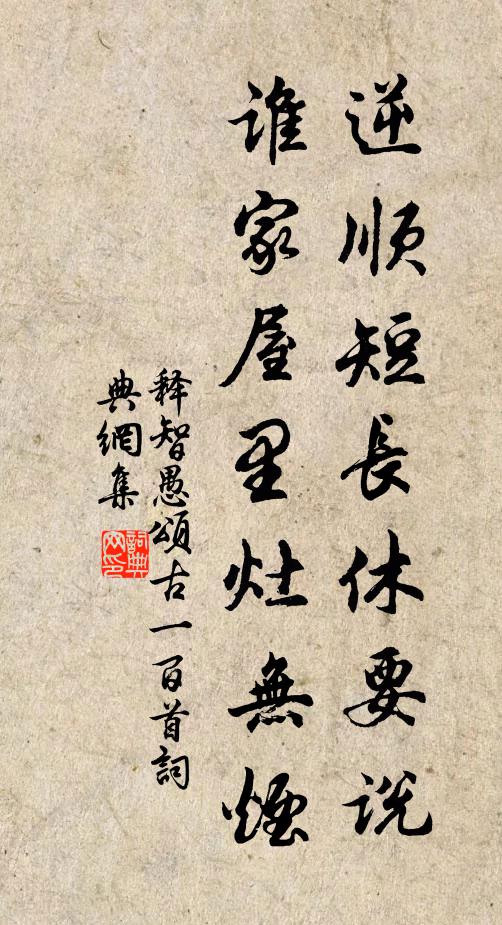 逆順短長休要説
誰家屋里灶無煙
释智愚頌古一百首詞
典網集
詞典
网印